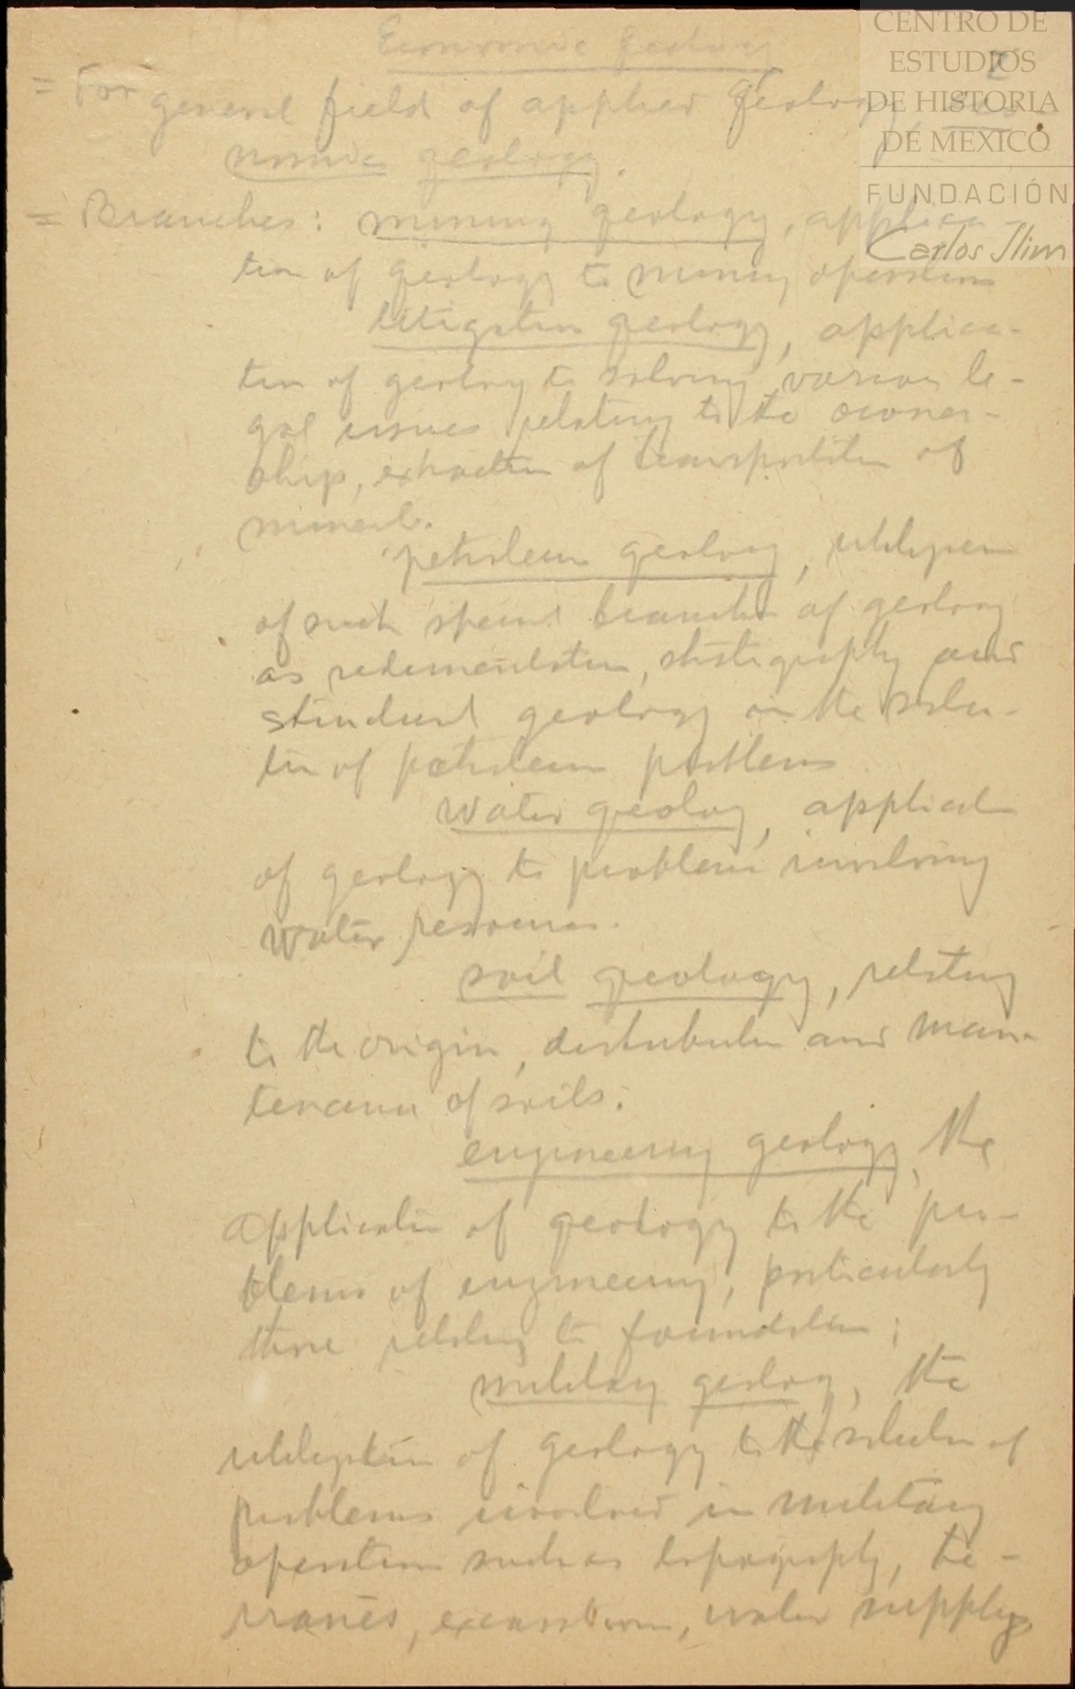 Economic geology
= For general field of applied geology, eco-
nomic geology.
= Branches: mining geology, applica-
tion of geology to mining operations
litigation geology, applica-
tion of geology to solving various le-
gal issues relating to the owner-
ship, extraction of transportation of
minerals.
petroleum geology, utilization
of such special branches of geology
as sedimentation, stratigraphy and
structural geology on the solu-
tion of petroleum problems
water geology, application
of geology to problems involving
water resources.
soil geology, relating
to the origin, distribution and main-
tenance of soils.
engineering geology, the
application of geology to the pro-
blems of engineering, particularly
those relating to foundation;
military geology, the
utilization of geology to the solution of
problems involved in military
operations such as topography, te-
rranes, excavations, water supply
CENTRO DE
ESTUDIOS
DE HISTORIA
DE MÉXICO
FUNDACIÓN
Carlos Slim